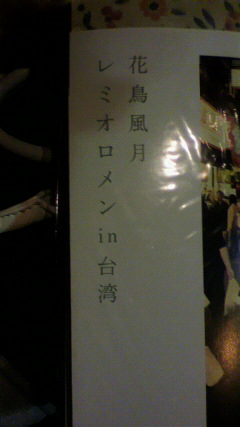 花鳥風月
レミオロメンin台湾